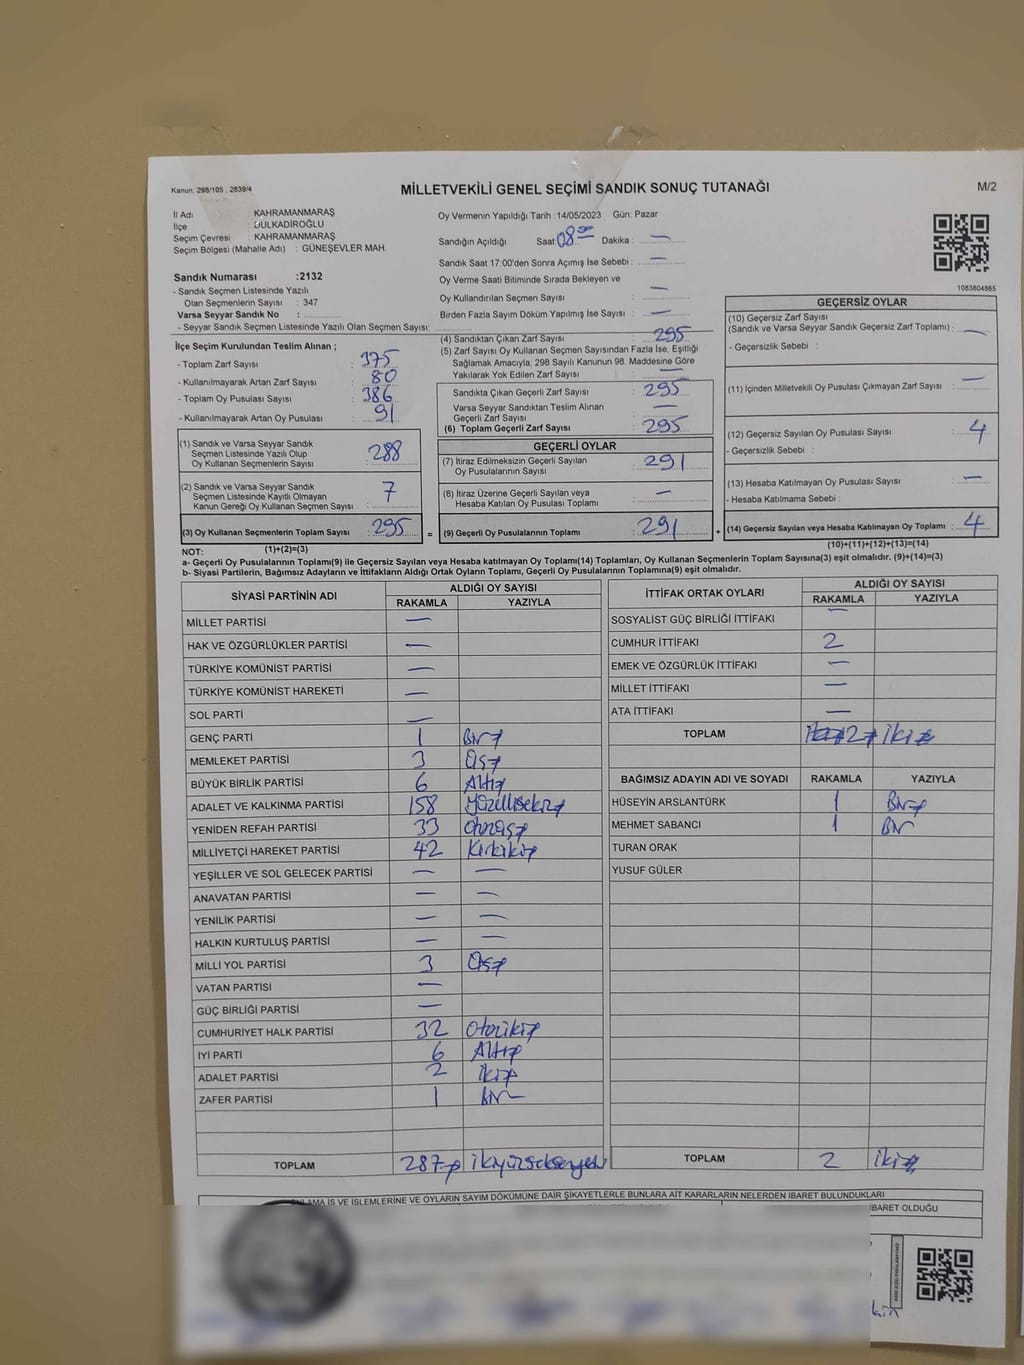 Kanun; 298/105 , 2839/4
MİLLETVEKİLİ GENEL SEÇİMİ SANDIK SONUÇ TUTANAĞI
M/2
İl Adı : KAHRAMANMARAŞ
İlçe : DULKADİROĞLU
Seçim Çevresi : KAHRAMANMARAŞ
Seçim Bölgesi (Mahalle Adı) : GÜNEŞEVLER MAH.
Sandık Numarası :2132
- Sandık Seçmen Listesinde Yazılı
Olan Seçmenlerin Sayısı : 347
Varsa Seyyar Sandık No :
- Seyyar Sandık Seçmen Listesinde Yazılı Olan Seçmen Sayısı:
Oy Vermenin Yapıldığı Tarih : 14/05/2023 Gün: Pazar
Sandığın Açıldığı Saat: 08 00 Dakika : —
Sandık Saat 17:00'den Sonra Açımış İse Sebebi : —
Oy Verme Saati Bitiminde Sırada Bekleyen ve
Oy Kullandırılan Seçmen Sayısı : —
Birden Fazla Sayım Döküm Yapılmış İse Sayısı : —
1083804865
İlçe Seçim Kurulundan Teslim Alınan ;
- Toplam Zarf Sayısı : 375
- Kullanılmayarak Artan Zarf Sayısı : 80
- Toplam Oy Pusulası Sayısı : 386
- Kullanılmayarak Artan Oy Pusulası : 91
(1) Sandık ve Varsa Seyyar Sandık
Seçmen Listesinde Yazılı Olup
Oy Kullanan Seçmenlerin Sayısı : 288
(2) Sandık ve Varsa Seyyar Sandık
Seçmen Listesinde Kayıtlı Olmayan
Kanun Gereği Oy Kullanan Seçmen Sayısı : 7
(3) Oy Kullanan Seçmenlerin Toplam Sayısı : 295 =
(1)+(2)=(3)
(4) Sandıktan Çıkan Zarf Sayısı : 295
(5) Zarf Sayısı Oy Kullanan Seçmen Sayısından Fazla İse, Eşitliği
Sağlamak Amacıyla, 298 Sayılı Kanunun 98. Maddesine Göre
Yakılarak Yok Edilen Zarf Sayısı : —
Sandıkta Çıkan Geçerli Zarf Sayısı : 295
Varsa Seyyar Sandıktan Teslim Alınan
Geçerli Zarf Sayısı : —
(6) Toplam Geçerli Zarf Sayısı : 295
GEÇERLİ OYLAR
(7) İtiraz Edilmeksizin Geçerli Sayılan
Oy Pusulalarının Sayısı : 291
(8) İtiraz Üzerine Geçerli Sayılan veya
Hesaba Katılan Oy Pusulası Toplamı : —
(9) Geçerli Oy Pusulalarının Toplamı : 291 +
GEÇERSİZ OYLAR
(10) Geçersiz Zarf Sayısı
(Sandık ve Varsa Seyyar Sandık Geçersiz Zarf Toplamı) : —
- Geçersizlik Sebebi :
(11) İçinden Milletvekili Oy Pusulası Çıkmayan Zarf Sayısı : —
(12) Geçersiz Sayılan Oy Pusulası Sayısı : 4
- Geçersizlik Sebebi :
(13) Hesaba Katılmayan Oy Pusulası Sayısı : —
- Hesaba Katılmama Sebebi :
(14) Geçersiz Sayılan veya Hesaba Katılmayan Oy Toplamı : 4
(10)+(11)+(12)+(13)=(14)
NOT:
a- Geçerli Oy Pusulalarının Toplamı(9) ile Geçersiz Sayılan veya Hesaba katılmayan Oy Toplamı(14) Toplamları, Oy Kullanan Seçmenlerin Toplam Sayısına(3) eşit olmalıdır. (9)+(14)=(3)
b- Siyasi Partilerin, Bağımsız Adayların ve İttifakların Aldığı Ortak Oyların Toplamı, Geçerli Oy Pusulalarının Toplamına(9) eşit olmalıdır.
SİYASİ PARTİNİN ADI ALDIĞI OY SAYISI
RAKAMLA YAZIYLA
MİLLET PARTİSİ —
HAK VE ÖZGÜRLÜKLER PARTİSİ —
TÜRKİYE KOMÜNİST PARTİSİ —
TÜRKİYE KOMÜNİST HAREKETİ —
SOL PARTİ —
GENÇ PARTİ 1 Bir
MEMLEKET PARTİSİ 3 Üç
BÜYÜK BİRLİK PARTİSİ 6 Altı
ADALET VE KALKINMA PARTİSİ 158 Yüzellisekiz
YENİDEN REFAH PARTİSİ 33 Otuzüç
MİLLİYETÇİ HAREKET PARTİSİ 42 Kırkiki
YEŞİLLER VE SOL GELECEK PARTİSİ — —
ANAVATAN PARTİSİ — —
YENİLİK PARTİSİ — —
HALKIN KURTULUŞ PARTİSİ — —
MİLLİ YOL PARTİSİ 3 Üç
VATAN PARTİSİ —
GÜÇ BİRLİĞİ PARTİSİ —
CUMHURİYET HALK PARTİSİ 32 Otuziki
İYİ PARTİ 6 Altı
ADALET PARTİSİ 2 İki
ZAFER PARTİSİ 1 Bir
TOPLAM 287 İkiyüzseksenyedi
İTTİFAK ORTAK OYLARI ALDIĞI OY SAYISI
RAKAMLA YAZIYLA
SOSYALİST GÜÇ BİRLİĞİ İTTİFAKI —
CUMHUR İTTİFAKI 2
EMEK VE ÖZGÜRLÜK İTTİFAKI —
MİLLET İTTİFAKI —
ATA İTTİFAKI —
TOPLAM 2 İki
BAĞIMSIZ ADAYIN ADI VE SOYADI RAKAMLA YAZIYLA
HÜSEYİN ARSLANTÜRK 1 Bir
MEHMET SABANCI 1 Bir
TURAN ORAK
YUSUF GÜLER
TOPLAM 2 İki
İŞ VE İŞLEMLERİNE VE OYLARIN SAYIM DÖKÜMÜNE DAİR ŞİKAYETLERLE BUNLARA AİT KARARLARIN NELERDEN İBARET BULUNDUKLARI
İBARET OLDUĞU